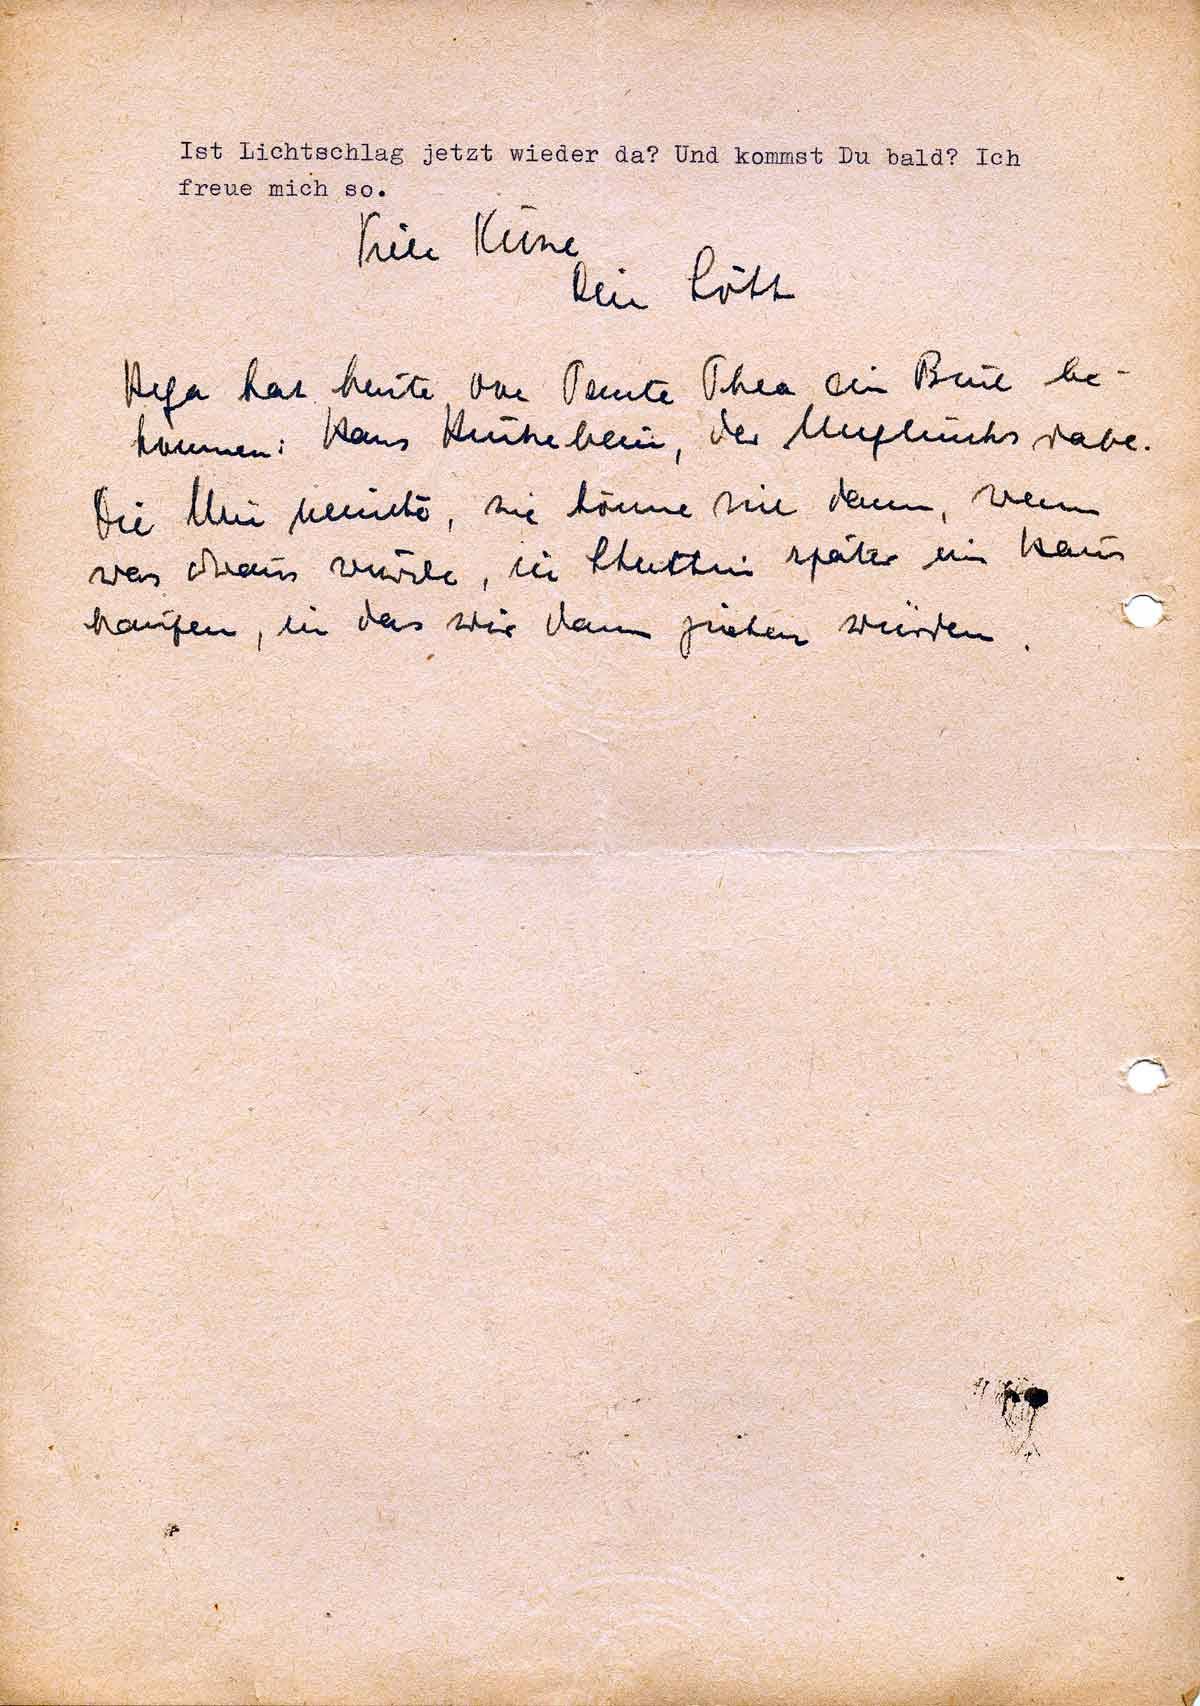 Ist Lichtschlag jetzt wieder da? Und kommst Du bald? Ich
freue mich so.
Viele Küsse
Dein Lött
hat heute von Tante Thea ein Buch be-
kommen: Hans Huckebein, der Unglücksrabe.
Die meinte, sie könne sie dann, wenn
was draus würde, in Stettin später ein Haus
kaufen, in das wir dann ziehen würden.